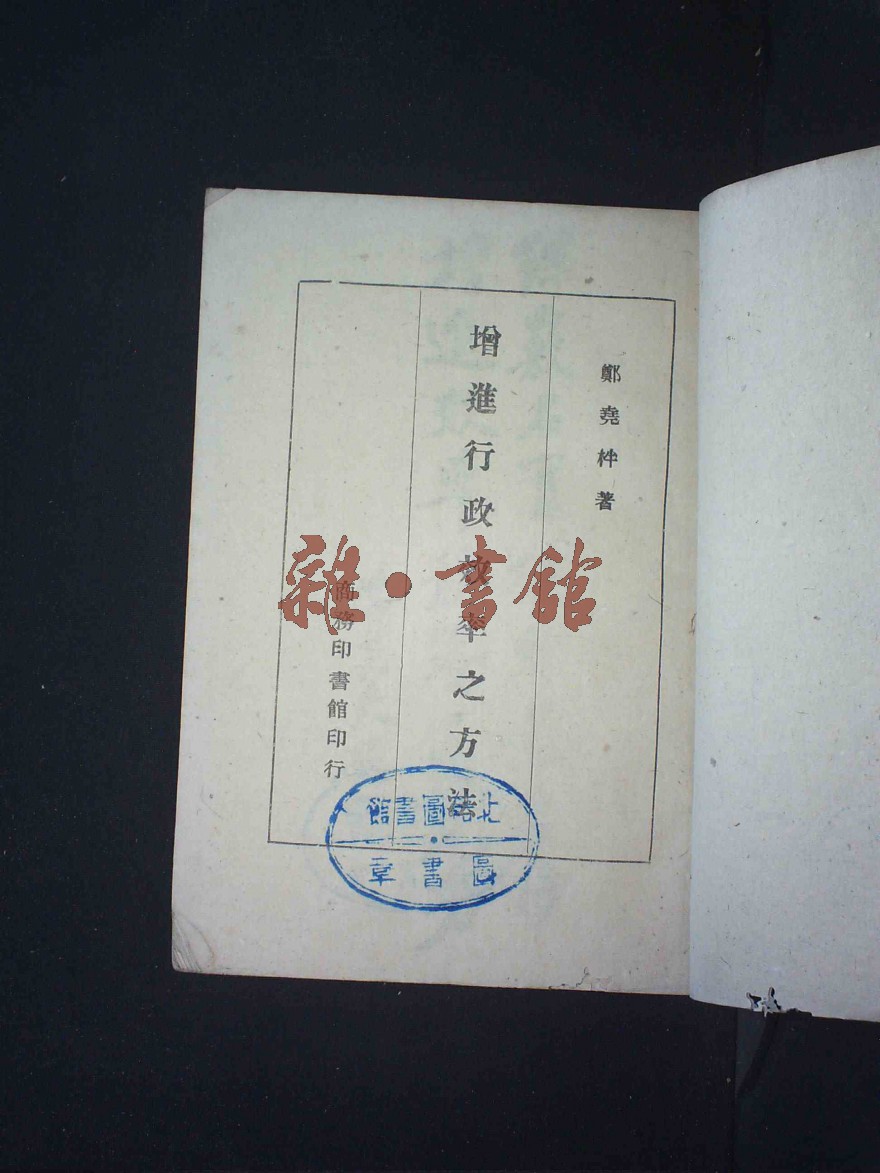 鄭堯柈著
增進行政效率之方法
商務印書館印行
雜·書館
圖書館
圖書章